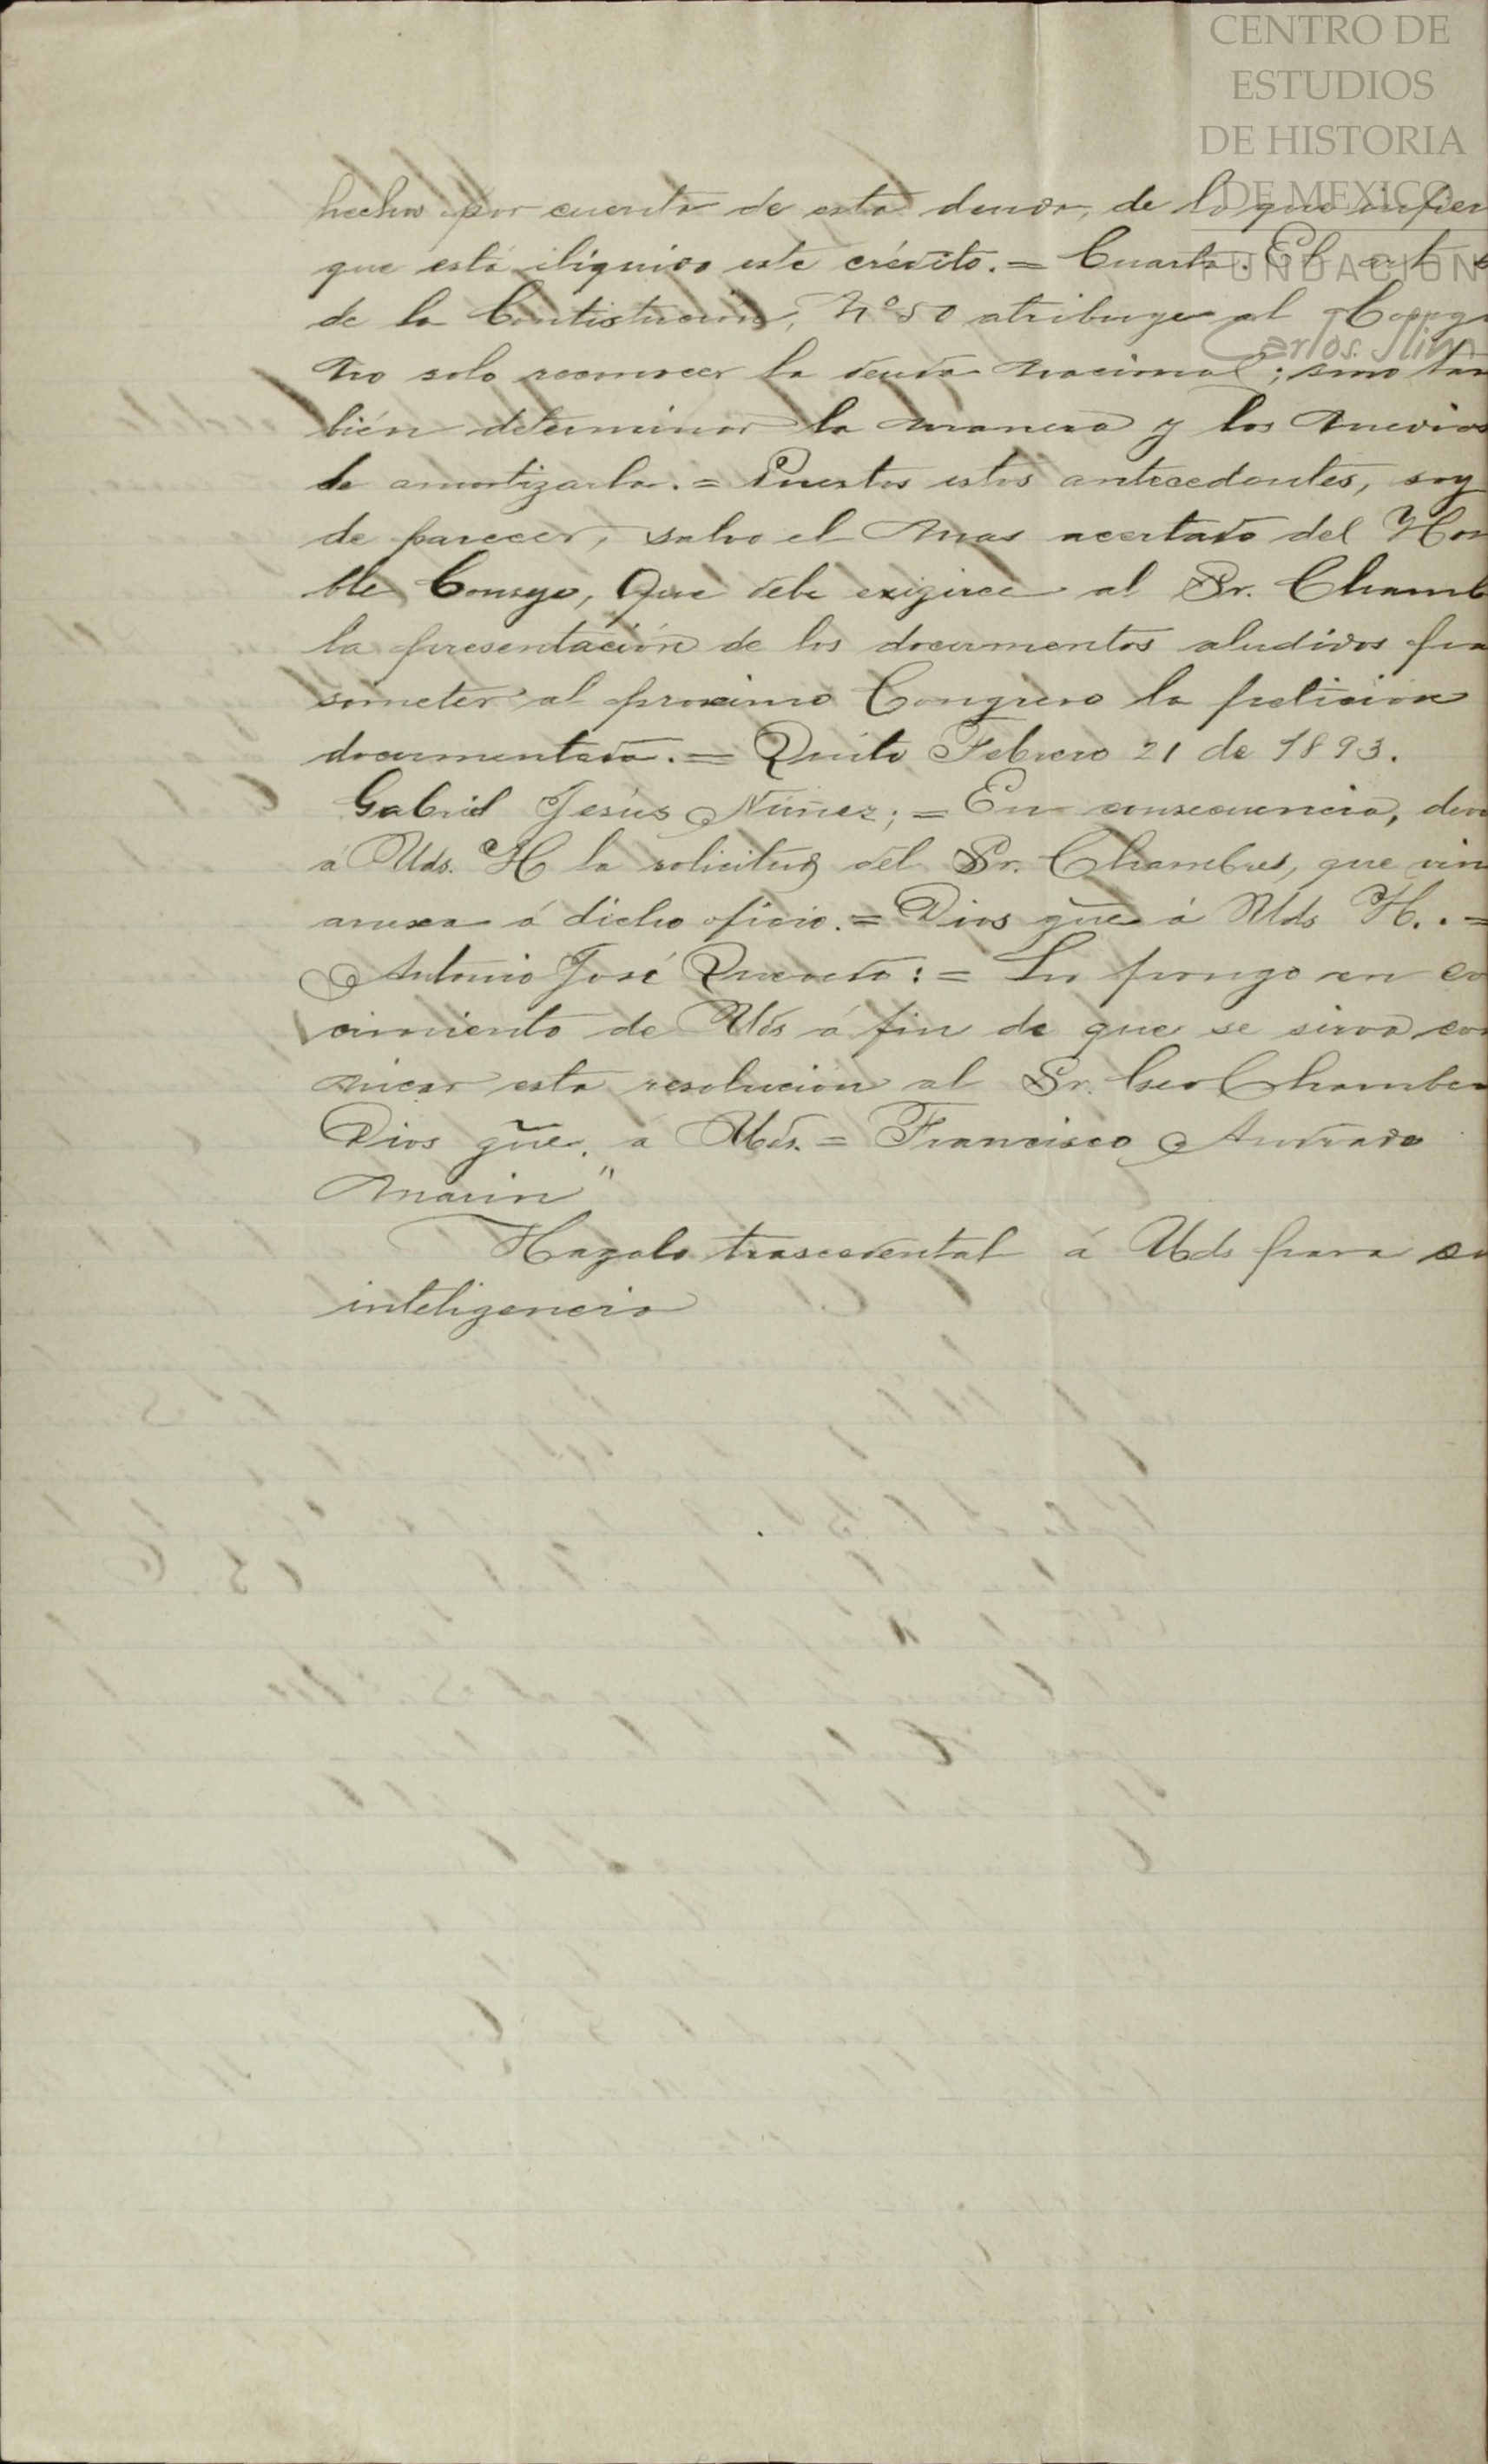 CENTRO DE
ESTUDIOS
DE HISTORIA
DE MEXICO
FUNDACION
Carlos Slim
hechos por cuenta de esta deuda, de lo que infier
que está iliquido este crédito. = Cuarta. El art
de la Contistucion, Nº 50 atribuye al Congr
no solo reconocer la deuda nacional; sino tam
bién determinar la manera y los medios
de amortizarla. = Puestos estos antecedentes, soy
de parecer, salvo el mas acertado del Hon
ble Consejo, Que debe exigirce al Sr. Chamb
la presentación de los documentos aludidos pra
someter al proximo Congreso la peticion
documentada. = Quito Febrero 21 de 1893.
Gabriel Jesús Núñez; = En consecuencia, dev
á Uds. H la solicitud del Sr. Chambres, que vin
anexa á dicho oficio. = Dios gue á Uds H. . =
Antonio José Quevedo: = Lo pongo en co
cimiento de Uds á fin de que se sirva co
nicar esta resolución al Sr. Geo Chamber
Dios gue. á Uds. = Francisco Andrade
Marin"
Hagolo trascedental á Uds para su
inteligencia